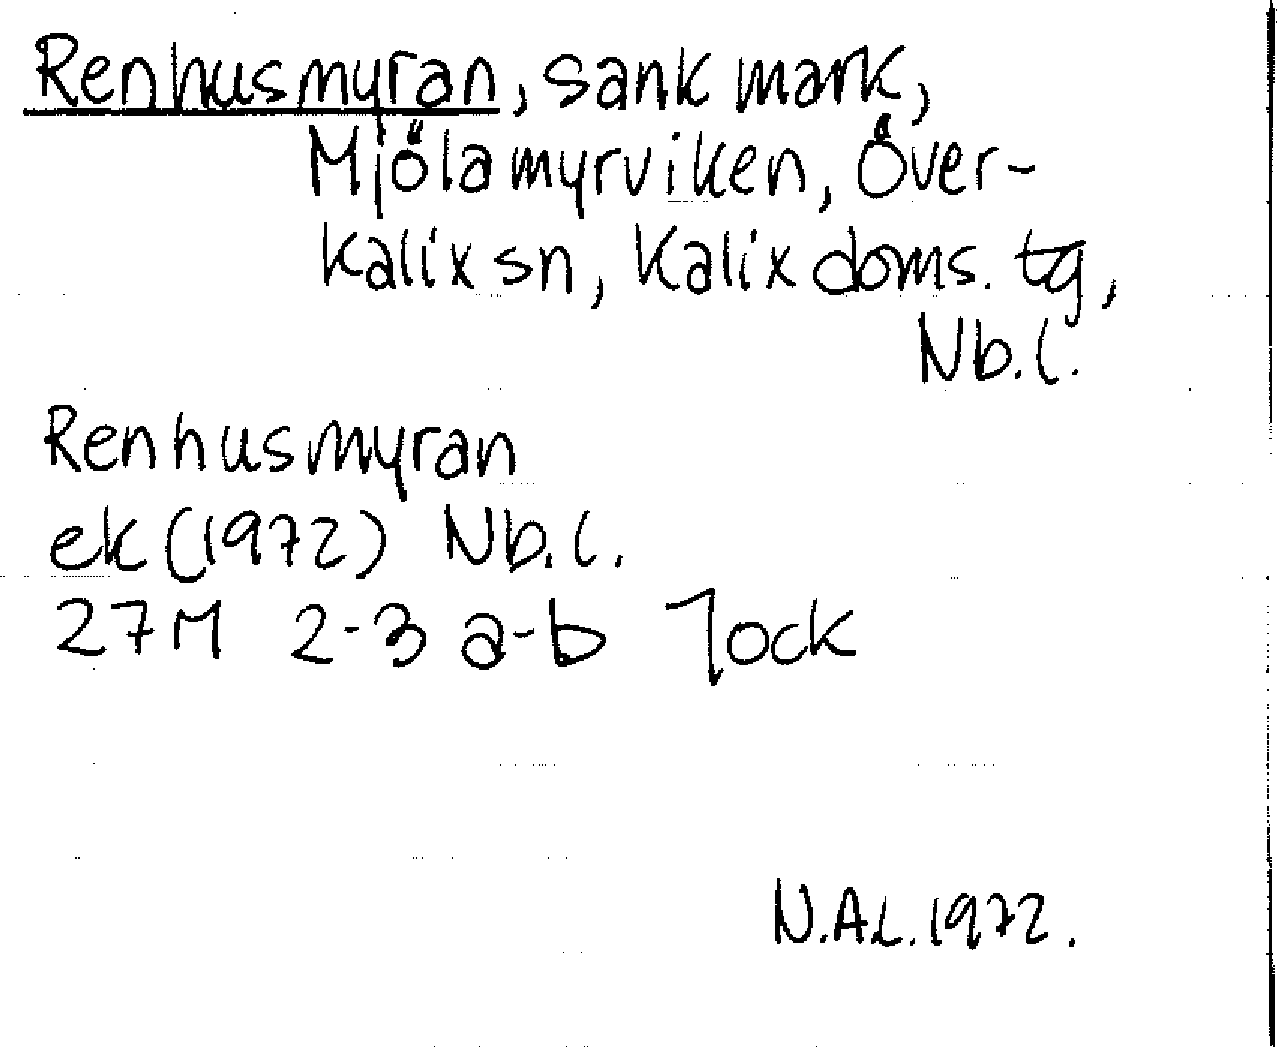 Renhusmyran, sank mark,
Mjölamyrviken, Över-
kalix sn, Kalix doms. tg,
Nb.l.
Renhusmyran
ek (1972) Nb.l.
27M 2-3 a-b Jock
N.A.L. 1972.